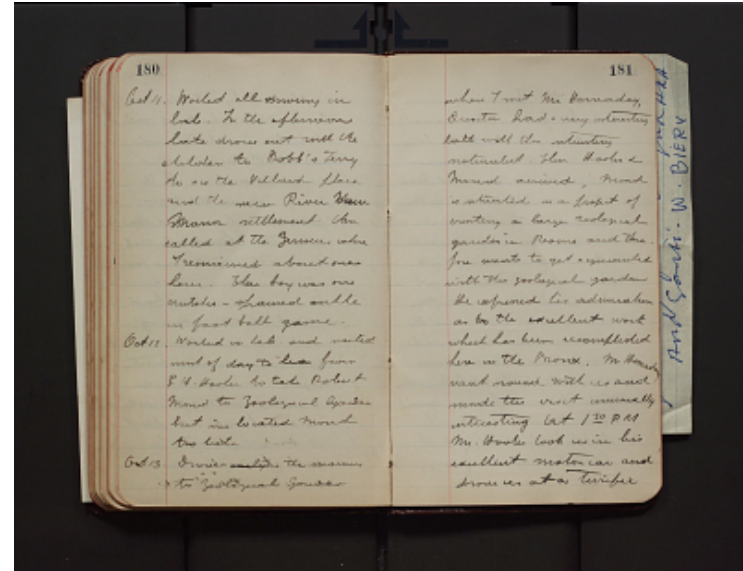 180
Oct 11. Worked all morning in
lab. In the afternoon
late drove out with the
children to Dobb's Ferry
to see the Villard place
and the new River
Manor settlement. We
called at the where
I remained about one
hour. The boy was on
crutches - sprained ankle
in foot ball game.
Oct 12. Worked in lab and waited
most of day to hear from
E H. Hooker to take Robert
Mond to Zoological Garden
but he located Mond
too late
Oct 13. Drove the morning
to Zoological Garden
181
where I met Mr Hornaday,
had a very interesting
talk with this interesting
naturalist. Then Hooker &
Mond arrived. Mond
is interested in a project of
creating a large zoological
garden in Rome and there
fore wants to get acquainted
with the zoological garden
He expressed his admiration
as to the excellent work
which has been accomplished
here in the Bronx. Mr Hornaday
went round with us and
made the visit unusually
interesting At 1 30 P M
Mr. Hooker took us in his
excellent motor car and
drove us at a terrific
W. BIERY